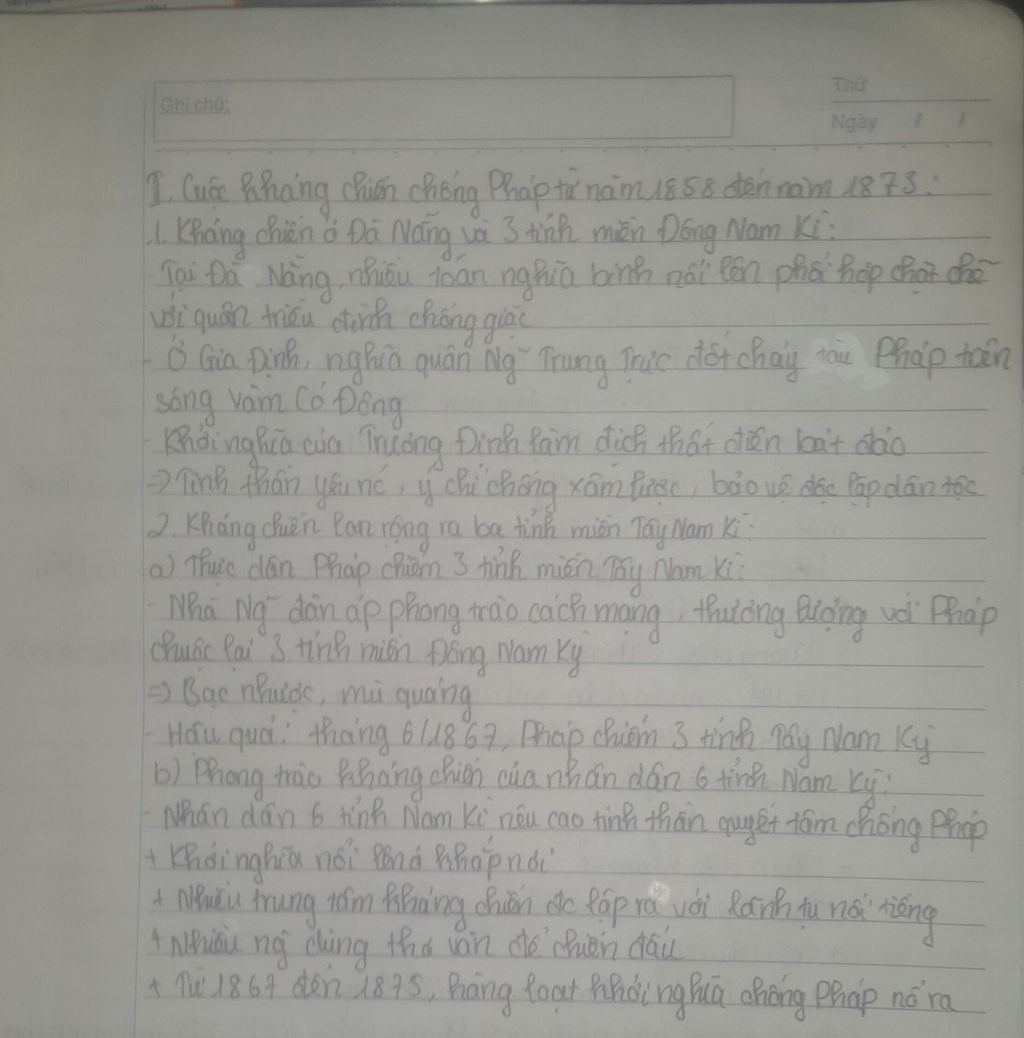 Ghi chú:
Thứ
Ngày / /
I. Cuộc kháng chiến chống Pháp từ năm 1858 đến năm 1873:
1. Kháng chiến ở Đà Nẵng và 3 tỉnh miền Đông Nam Kì:
- Tại Đà Nẵng, nhiều toán nghĩa binh nổi lên phối hợp chặt chẽ
với quân triều đình chống giặc
- Ở Gia Định, nghĩa quân Ng~ Trung Trực đốt cháy tàu Pháp trên
sông Vàm Cỏ Đông
- Khởi nghĩa của Trương Định làm địch thất điên bát đảo
=> Tinh thần yêu nc, ý chí chống xâm lược, bảo vệ độc lập dân tộc
2. Kháng chiến lan rộng ra ba tỉnh miền Tây Nam Kì:
a) Thực dân Pháp chiếm 3 tỉnh miền Tây Nam Kì:
- Nhà Ng~ đàn áp phong trào cách mạng, thương lượng với Pháp
chuộc lại 3 tỉnh miền Đông Nam Kỳ
=> Bạc nhược, mù quáng
- Hậu quả: tháng 6/1867, Pháp chiếm 3 tỉnh Tây Nam Kỳ
b) Phong trào kháng chiến của nhân dân 6 tỉnh Nam Kỳ:
- Nhân dân 6 tỉnh Nam Kì nêu cao tinh thần quyết tâm chống Pháp
+ Khởi nghĩa nổi lên ở khắp nơi
+ Nhiều trung tâm kháng chiến đc lập ra với lãnh tụ nổi tiếng
+ Nhiều ng dùng thơ văn để chiến đấu
+ Từ 1867 đến 1875, hàng loạt khởi nghĩa chống Pháp nổ ra